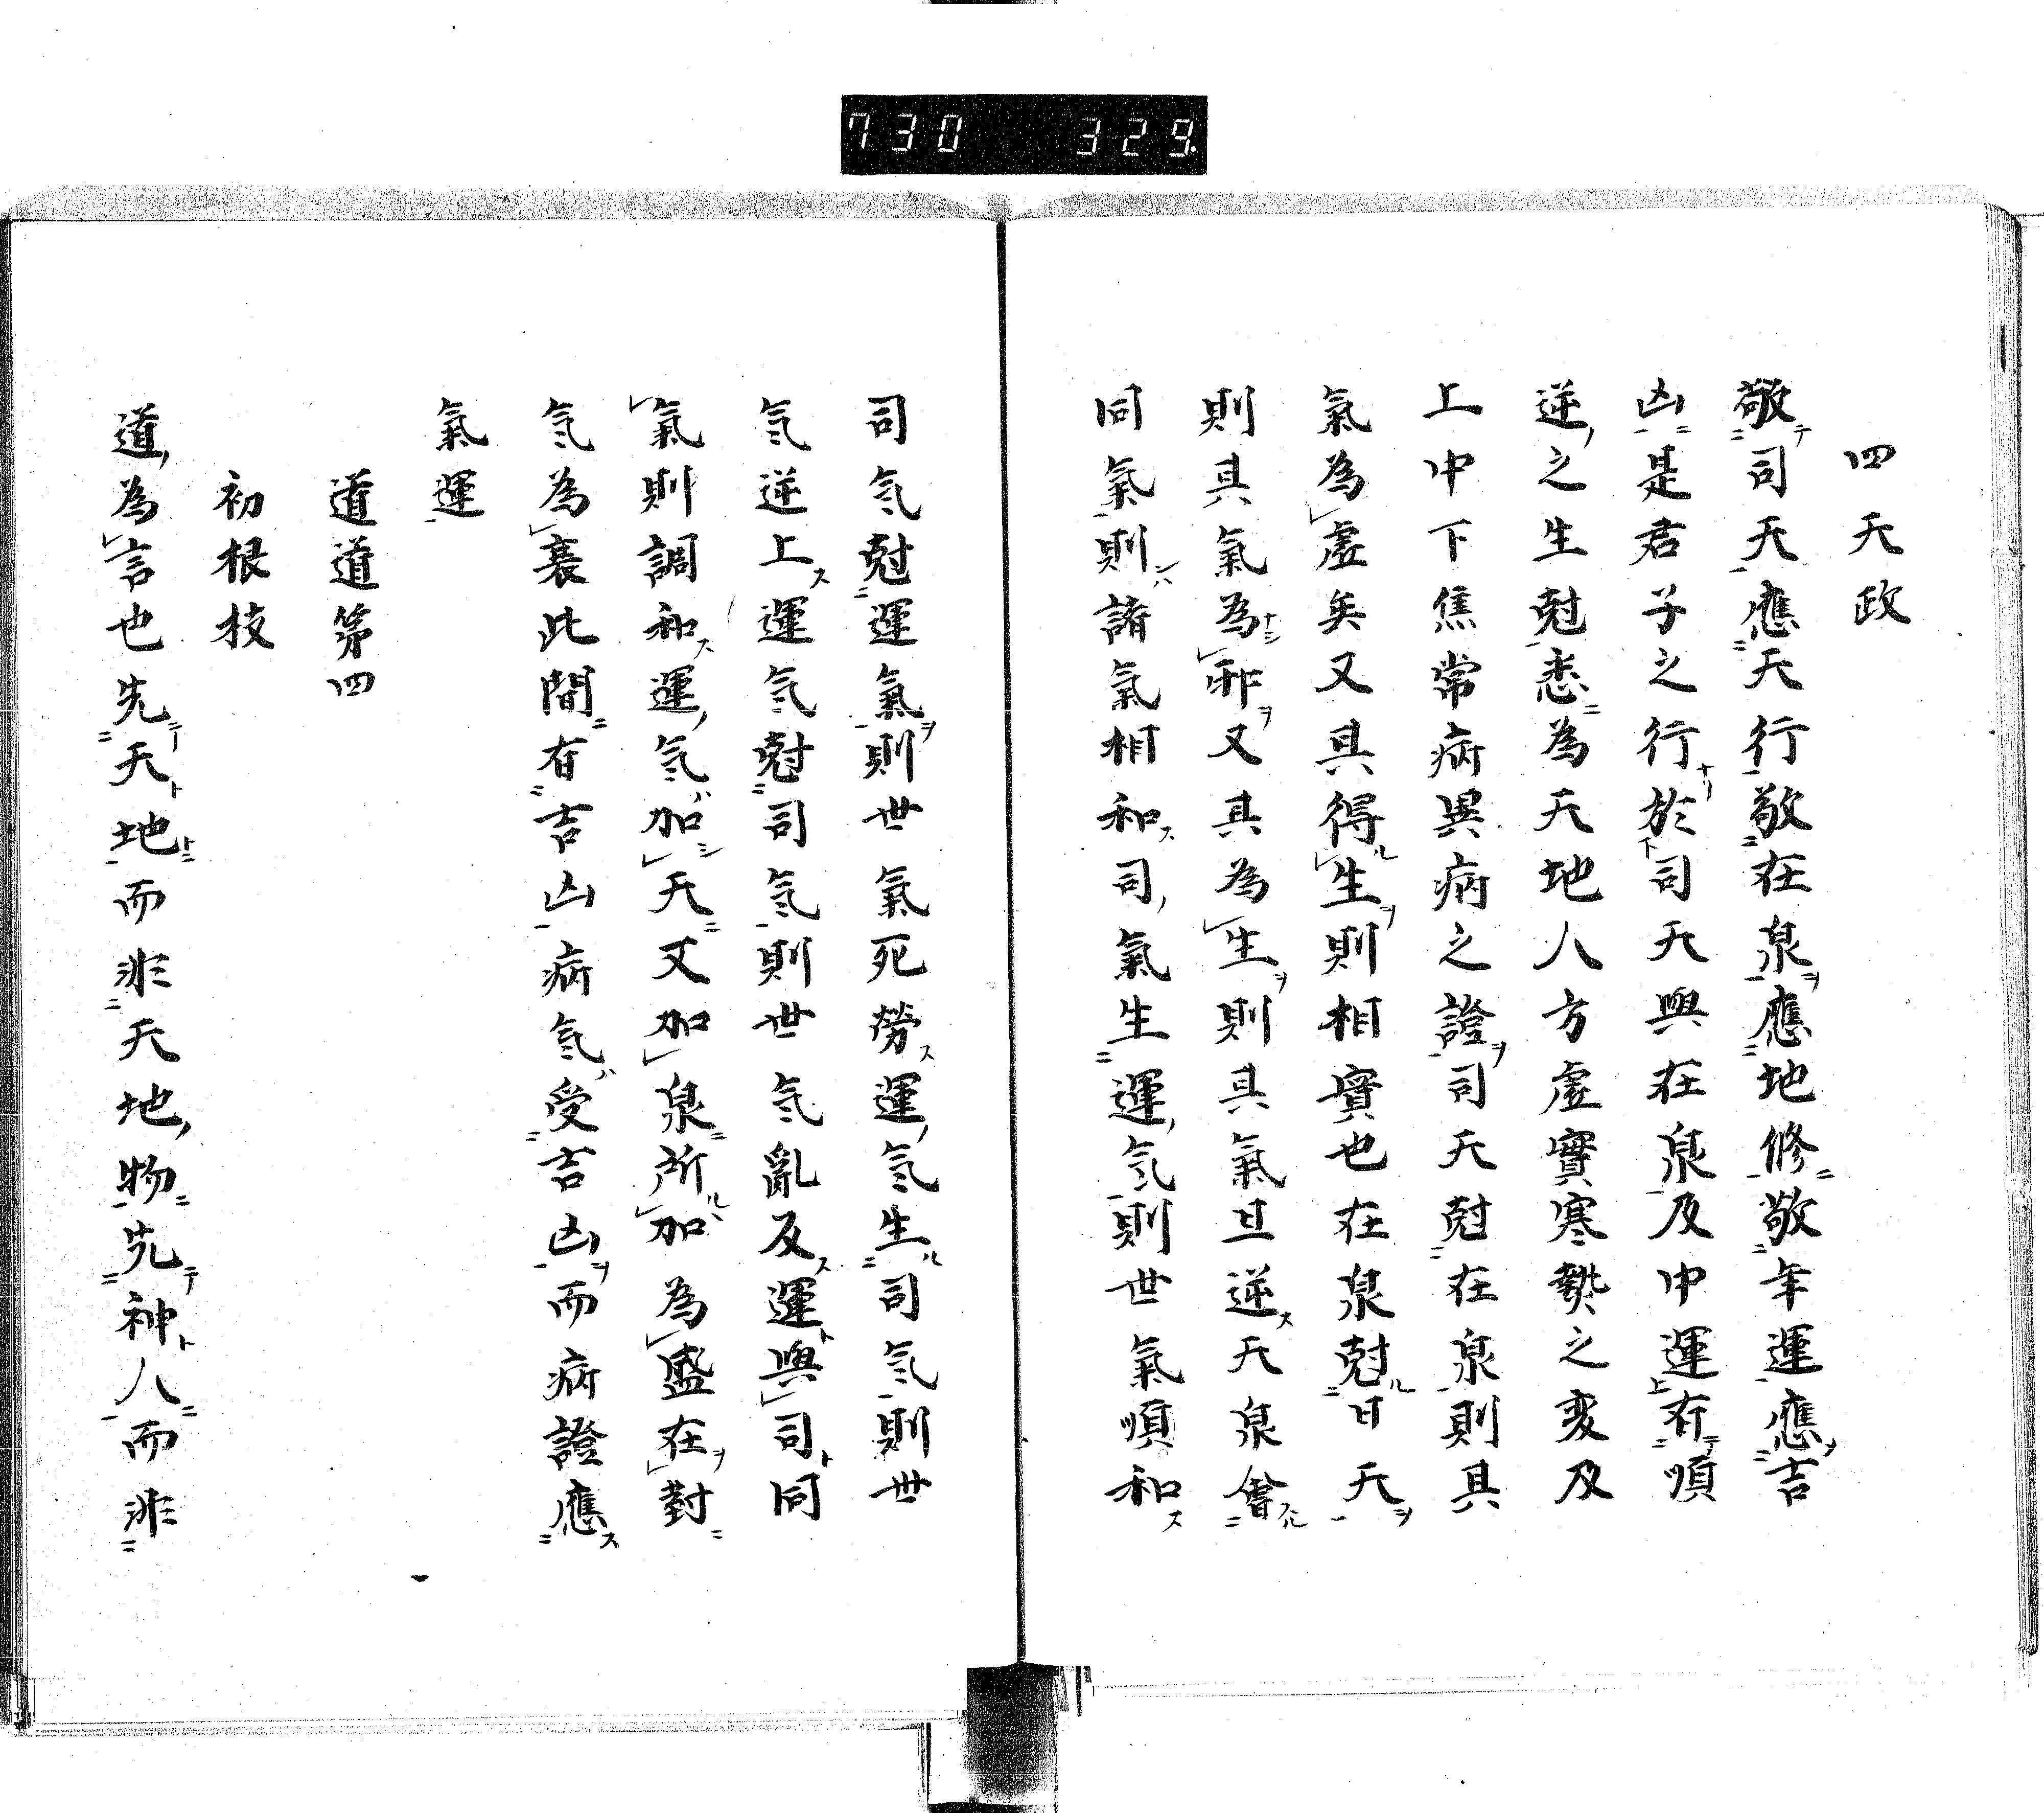 730 329
四天政
敬司天應天行敬在泉應地修敬年運應吉
凶是君子之行於司天與在泉及中運有順
逆之生尅悉為天地人方虛實寒熱之変及
上中下焦常病異病之證司天尅在泉則具
氣為虛矣又具得生則相實也在泉尅日天
則具氣為邪又具為生則具氣且逆天泉會
同氣則諸氣相和司氣生運氣則世氣順和
司気尅運氣則世氣死勞運気生司気則世
気逆上運気尅司気則世気亂及運與司同
氣則調和運気加天又加泉所加為盛在對
気為衰此間有吉凶病気受吉凶而病證應
氣運
道道第四
初根枝
道為言也先天地而非天地物先神人而非